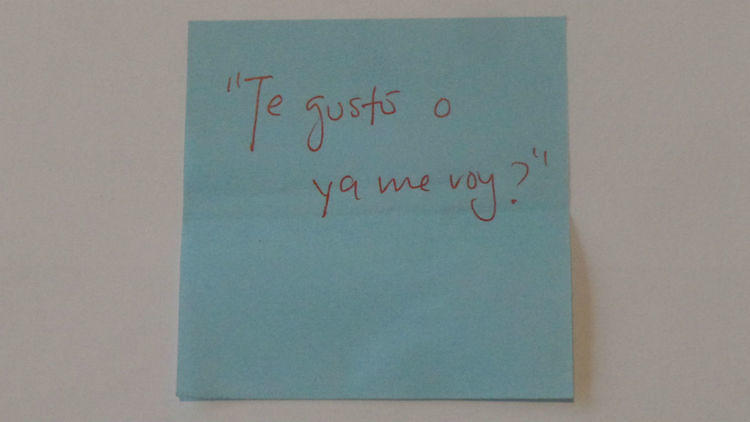 "Te gustō o
ya me voy?"